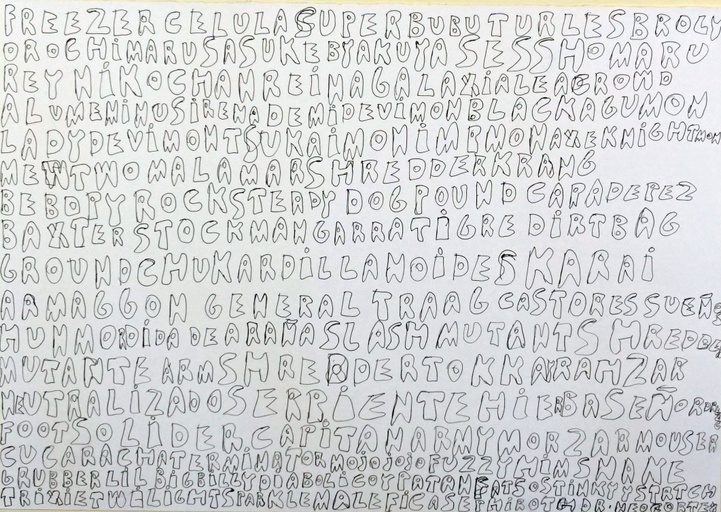 FREEZERCELULASUPERBUBUTURLESBROLY
OROCHiMARUSASUKEBYAKUYASESSHOMARU
REYNIKOCHANREiNAGALAXiALEAGROND
ALUMEMiMUSiRENADEMiDEViMONBLACKAGUMON
LADYDEViMONTSUKAiMONiMPMONAXEKNiGHTMON
MEWTWOMALAMARSHREDDERKRANG
BEBOPYROCKSTEADYDOGPOUNDCARADEPEZ
BAXTERSTOCKMANGARRATiGREDiRTBAG
GROUNDCHUKARDiLLANOiDESKARAi
ARMAGGONGENERALTRAAGCASTORESSUEÑOS
HUNMORDiDADEARAÑASLASHMUTANTSHREDDER
MUTANTEARMSHREDDERTOKKAYRAHZAR
NEUTRALiZADOSERPiENTEHiERBASEÑOR
FOOTSOLiDERCAPiTANARMYMORZARMOUSER
CUCARACHATERMiNATORMOJOJOJOFUZZYHiMSNAKE
GRUBBERLiLBiGBiLLYDiABOLiCOYPATANFATSOSTiNKYYSTRTCH
TRiXiETWELiGHTSPARKLEMALEFiCASEPHiROTHDR.NEOCORTEX